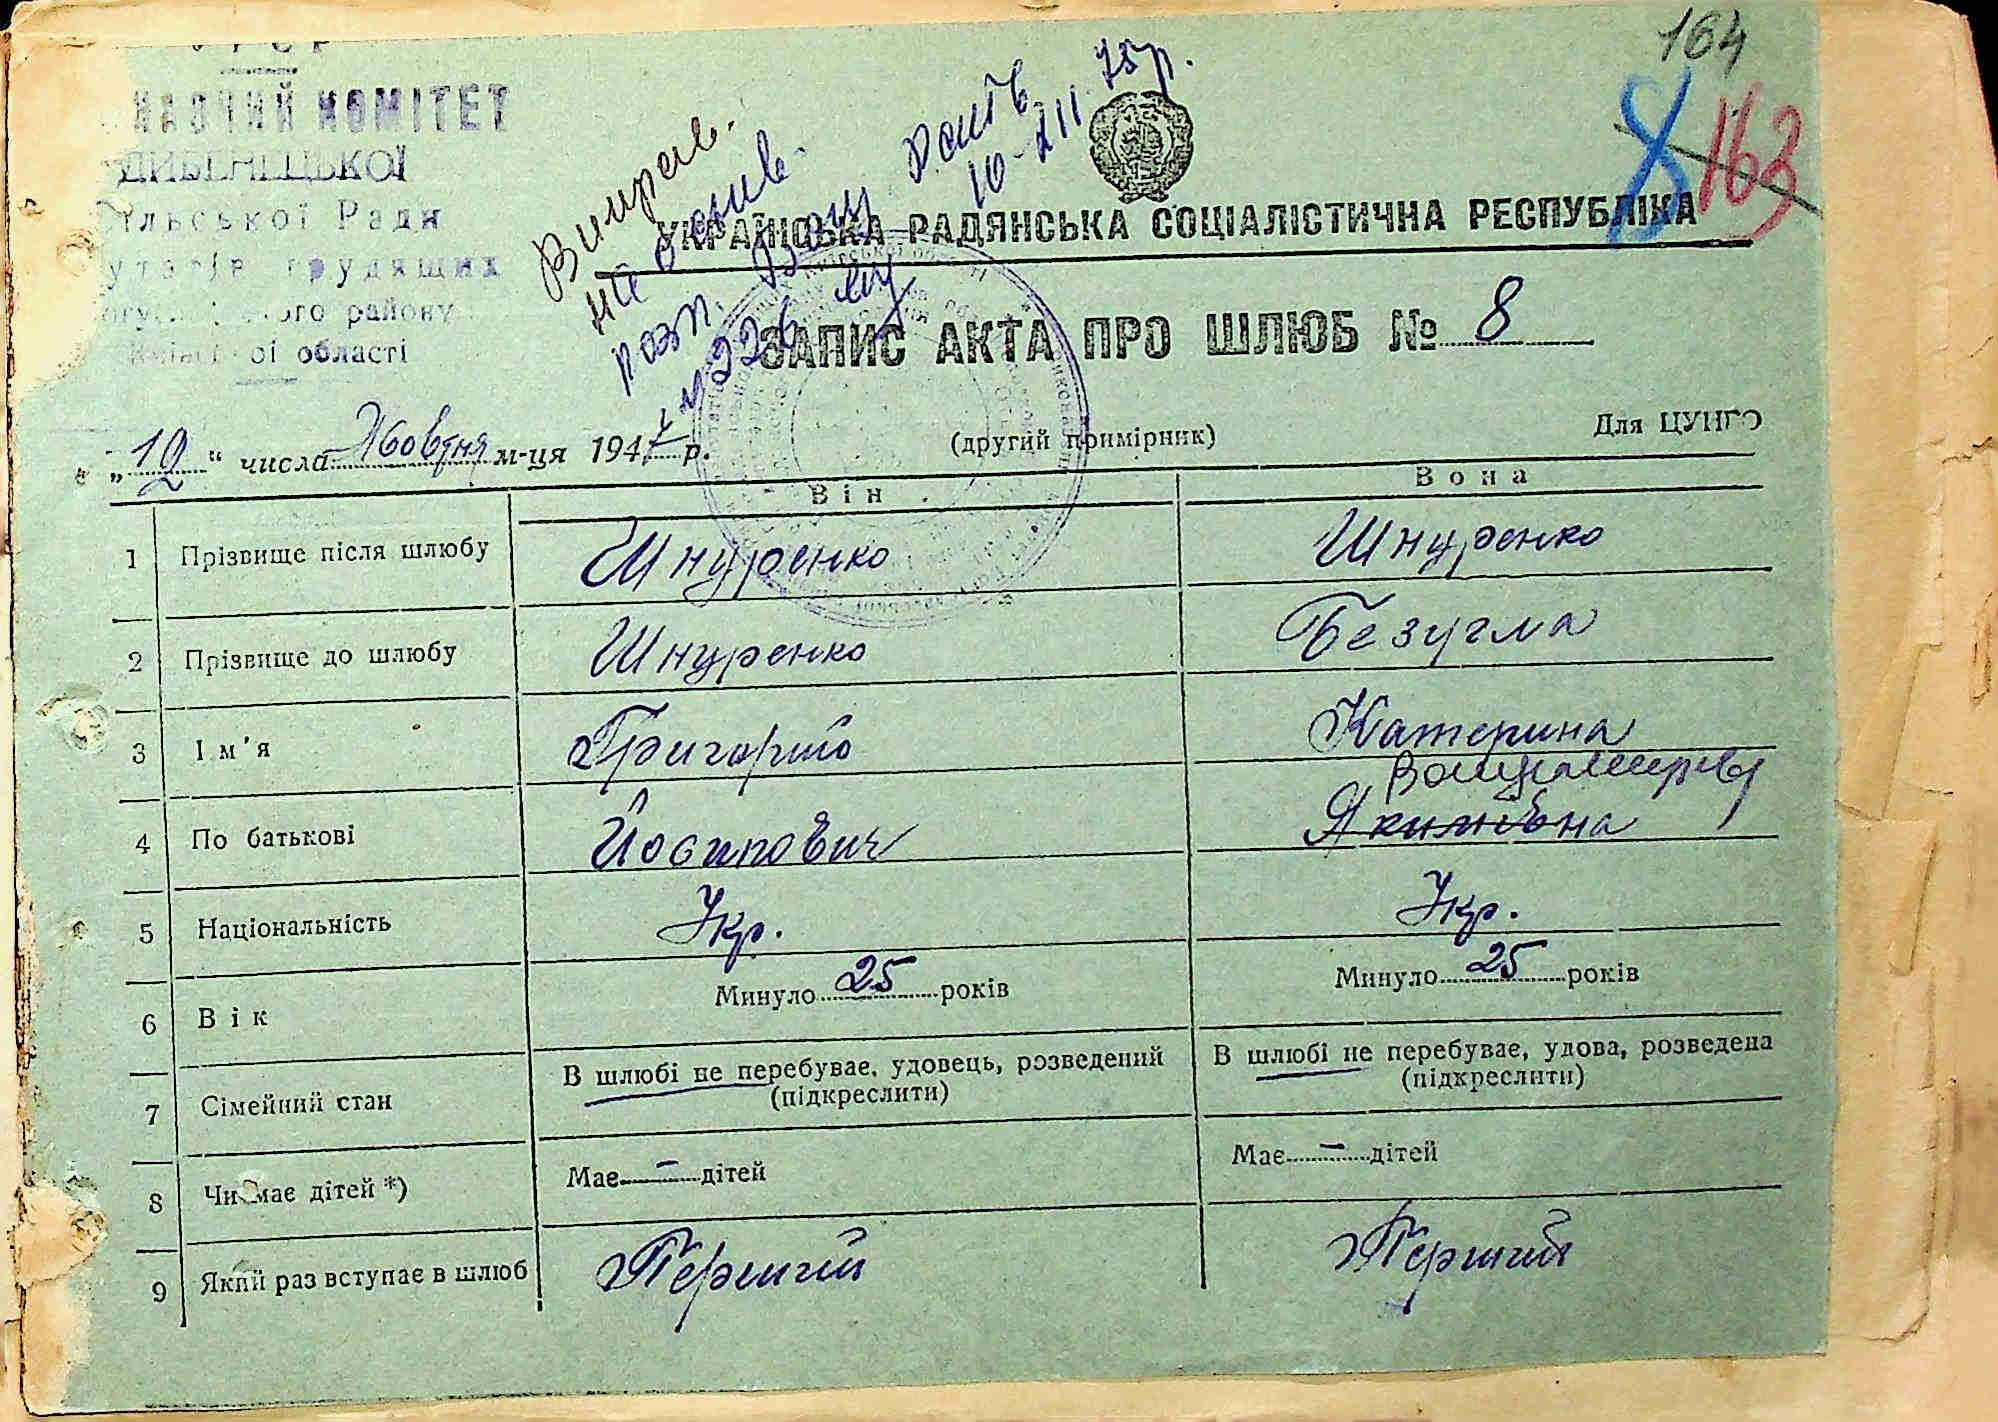 УРСР
КОМІТЕТ
ської Ради
трудящих
району
області
164
8 163
Виправ.
на основ.
розп.
10-III 75р.
УКРАЇНСЬКА РАДЯНСЬКА СОЦІАЛІСТИЧНА РЕСПУБЛІКА
ЗАПИС АКТА ПРО ШЛЮБ № 8
„12“ числа Жовтня м-ця 1947 р.
(другий примірник)
Для ЦУНГО
Він
Вона
1 Прізвище після шлюбу Шнуренко Шнуренко
2 Прізвище до шлюбу Шнуренко Безугла
3 Ім'я Григорій Катерина
4 По батькові Йосипович Якимівна
5 Національність Укр. Укр.
6 Вік Минуло 25 років Минуло 25 років
7 Сімейний стан В шлюбі не перебуває, удовець, розведений (підкреслити) В шлюбі не перебуває, удова, розведена (підкреслити)
8 Чи має дітей *) Має – дітей Має – дітей
9 Який раз вступає в шлюб Перший Перший